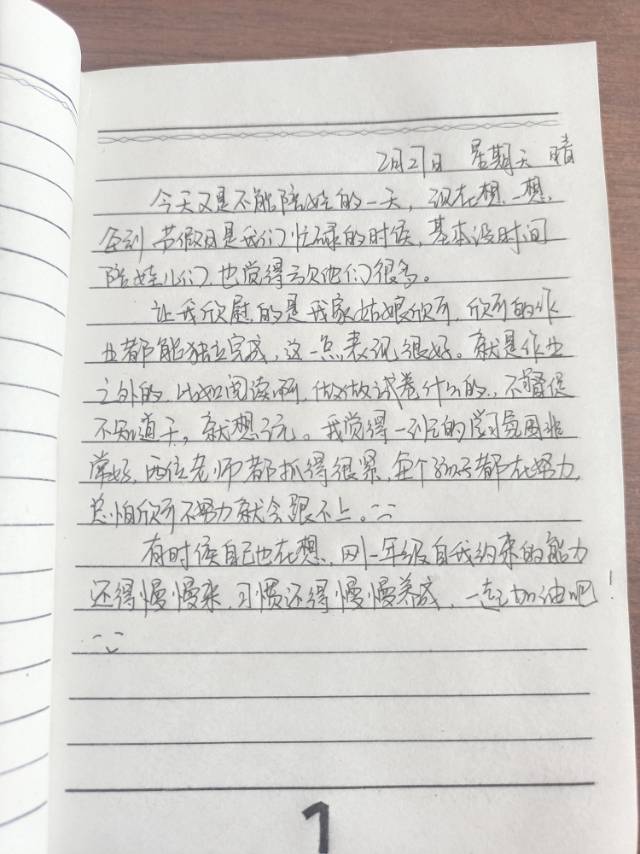 2月27日 星期天 晴
今天又是不能陪娃的一天,现在想一想,
每到节假日是我们忙碌的时候,基本没时间
陪娃儿们,也觉得亏欠他们很多。
让我欣慰的是我家姑娘欣所,欣所的作
业都能独立完成,这一点表现很好。就是作业
之外的,比如阅读啊,做做试卷什么的,不督促
不知道干,就想玩。我觉得一班的学习氛围非
常好,两位老师都抓得很紧,每个孩子都在努力,
总怕欣所不努力就会跟不上。
有时候自己也在想,刚一年级自我约束的能力
还得慢慢来,习惯还得慢慢养成,一起加油吧!
1